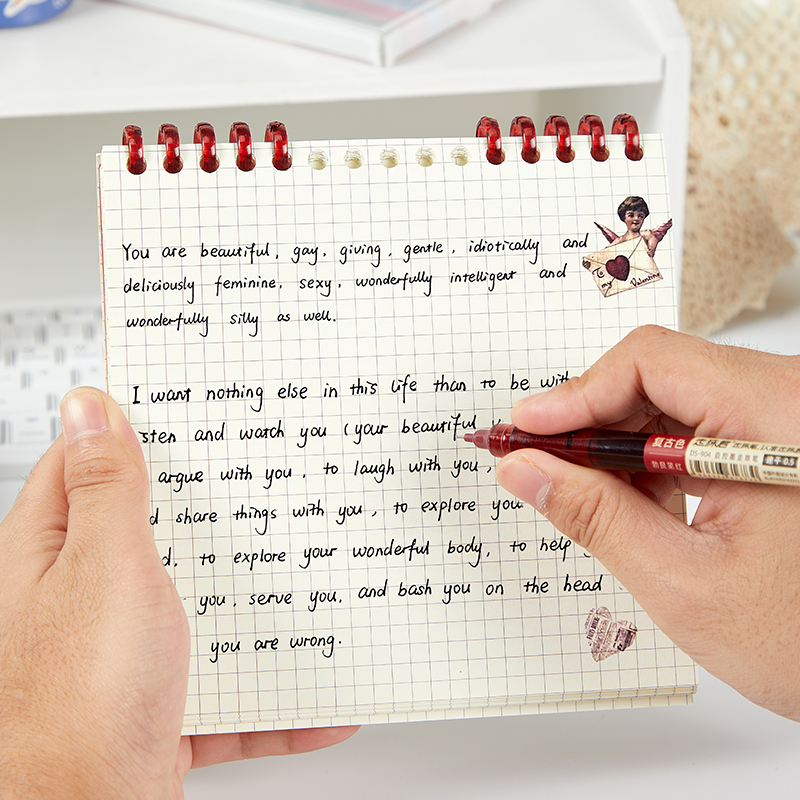 You are beautiful, gay, giving, gentle, idiotically and
deliciously feminine, sexy, wonderfully intelligent and
wonderfully silly as well.
To my Valentine
I want nothing else in this life than to be with
sten and watch you (your beautiful
argue with you, to laugh with you,
d share things with you, to explore you
d, to explore your wonderful body, to help
you, serve you, and bash you on the head
you are wrong.
复古色
勃艮第红
DS-904 直液
0.5